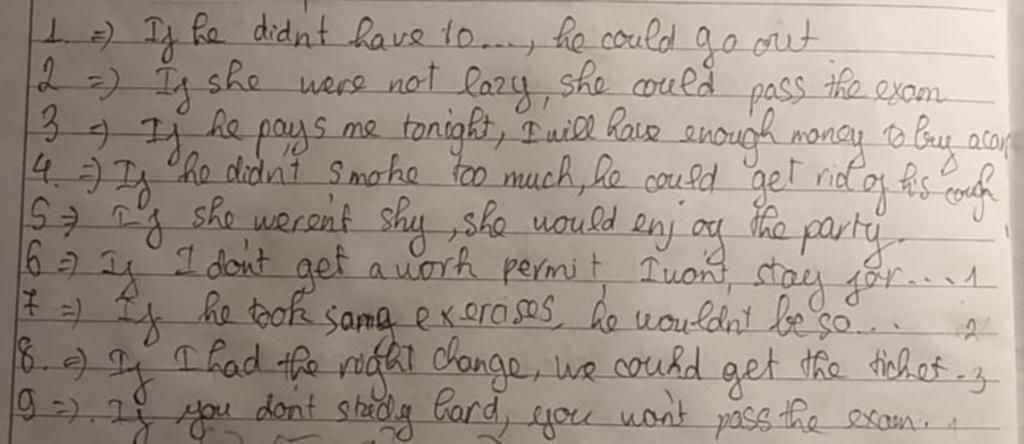 1. => If he didnt have to..., he could go out
2 => If she were not lazy, she could pass the exam
3 => If he pays me tonight, I will have enough money to buy a car
4. => If he didn't smoke too much, he could get rid of his cough
5 => If she weren't shy, she would enjoy the party.
6 => If I don't get a work permit, I won't stay for.... 1
7 => If he took some exercises, he wouldn't be so... 2
8. => If I had the right change, we could get the ticket. 3
9 =>. If you don't study hard, you won't pass the exam.